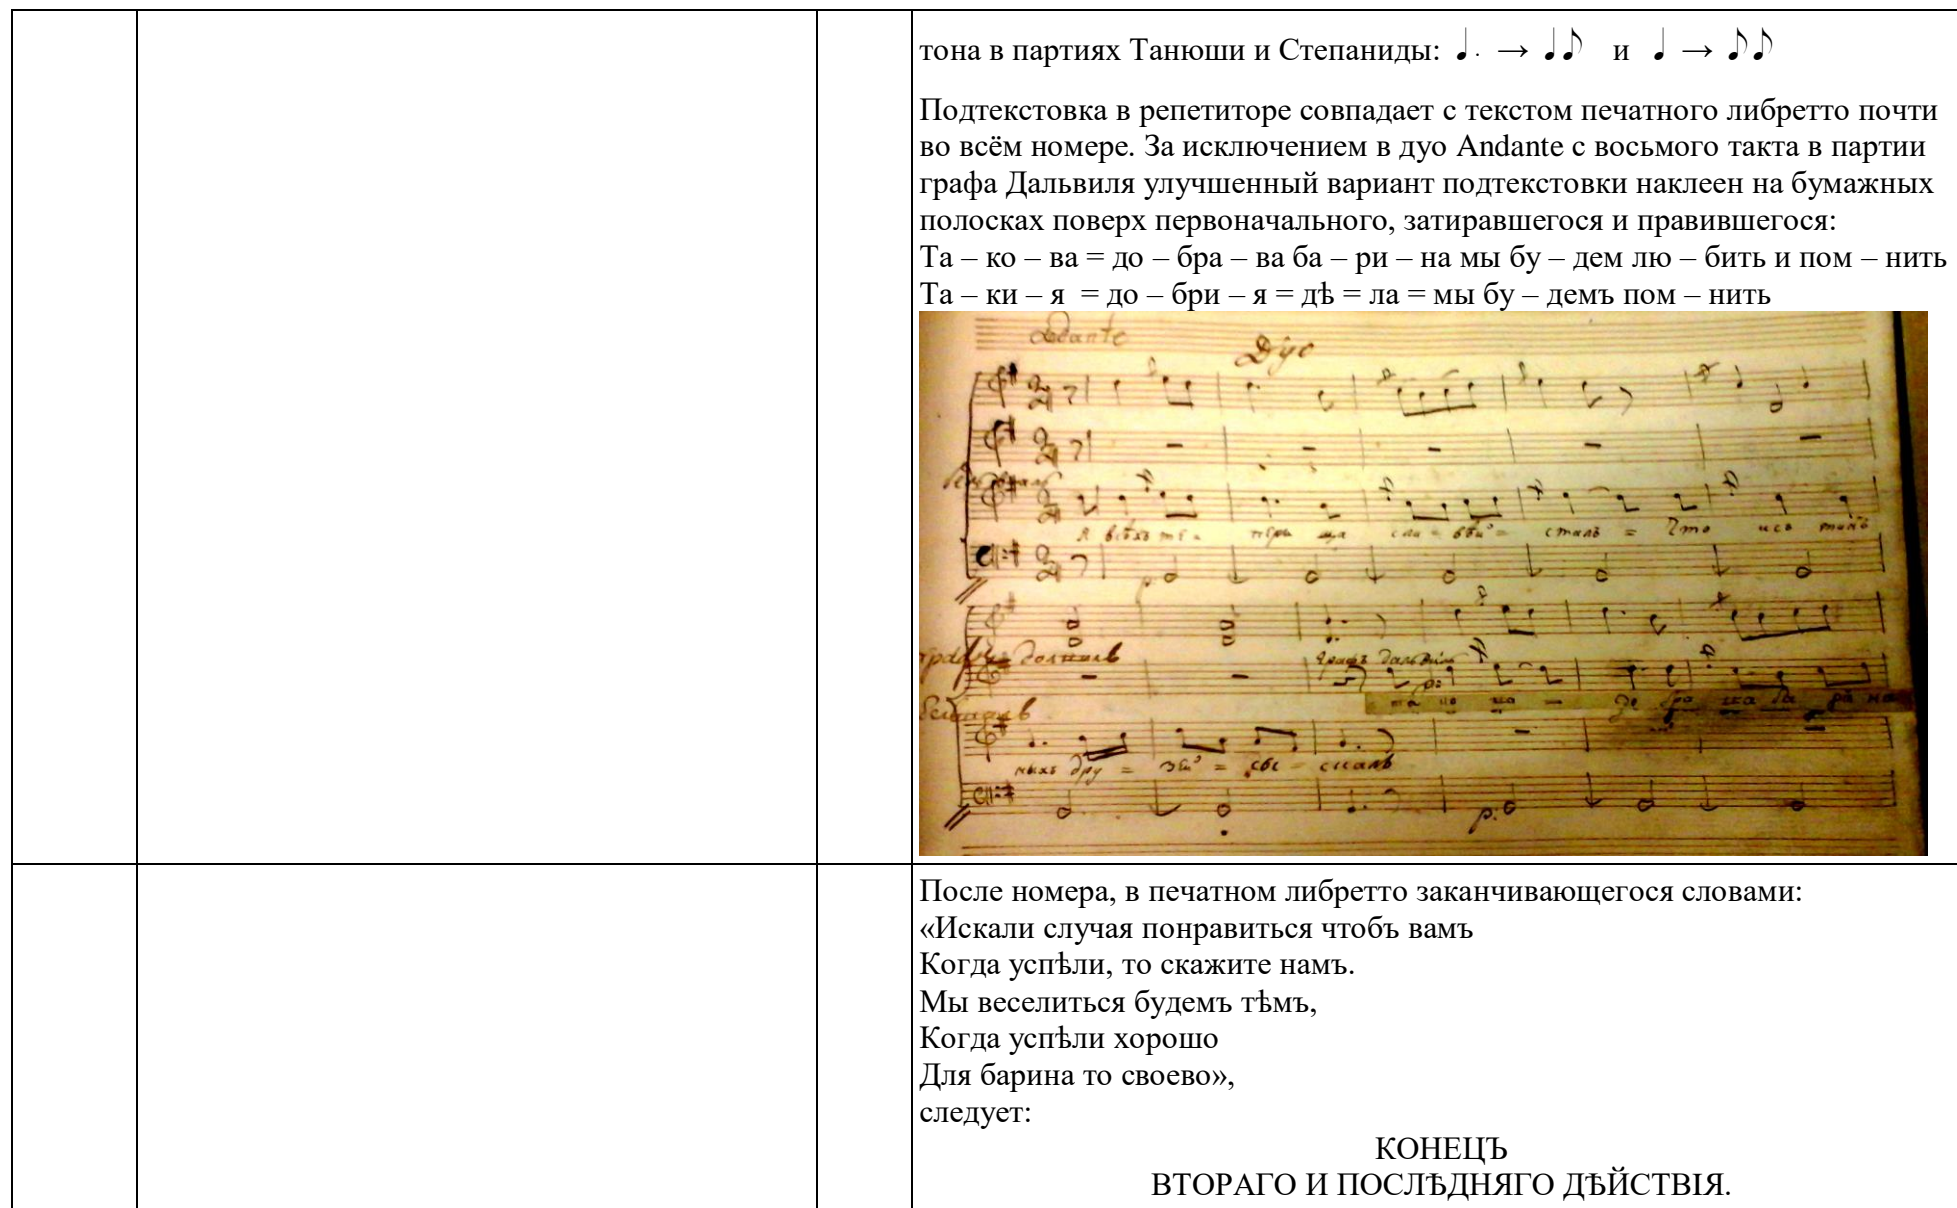 тона в партиях Танюши и Степаниды: 𝅘𝅥. → 𝅘𝅥 𝅘𝅥𝅮 и 𝅘𝅥 → 𝅘𝅥𝅮 𝅘𝅥𝅮
Подтекстовка в репетиторе совпадает с текстом печатного либретто почти
во всём номере. За исключением в дуо Andante с восьмого такта в партии
графа Дальвиля улучшенный вариант подтекстовки наклеен на бумажных
полосках поверх первоначального, затиравшегося и правившегося:
Та – ко – ва = до – бра – ва ба – ри – на мы бу – дем лю – бить и пом – нить
Та – ки – я = до – бри – я = дѣ = ла = мы бу – демъ пом – нить
Дуо
графъ дальвиль
После номера, в печатном либретто заканчивающегося словами:
«Искали случая понравиться чтобъ вамъ
Когда успѣли, то скажите намъ.
Мы веселиться будемъ тѣмъ,
Когда успѣли хорошо
Для барина то своево»,
следует:
КОНЕЦЪ
ВТОРАГО И ПОСЛѢДНЯГО ДѢЙСТВІЯ.